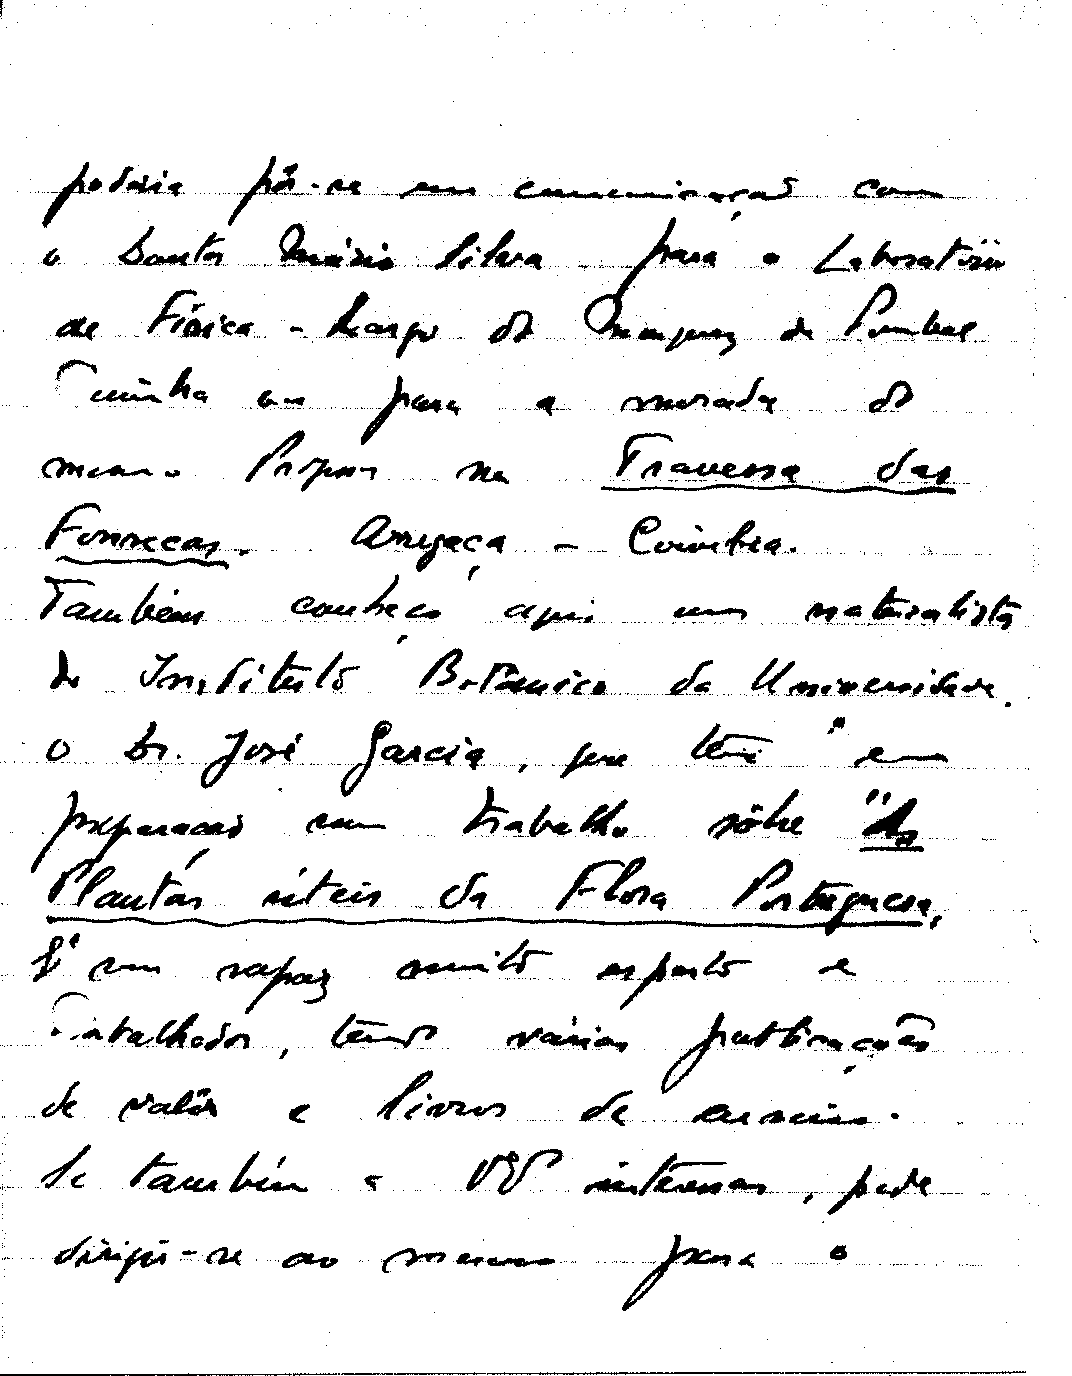 poderia pôr-se em comunicação com
o Doutor Mário Silva para o Laboratório
de Física - Largo do Marquez de Pombal
ou para a morada do
mesmo Profesor na Travessa das
Fonsecas. Arregaça - Coimbra.
Também conheço aqui um naturalista
do Instituto Botânico da Universidade.
o Dr. José Garcia, que tem em
preparação um trabalho sôbre "As
Plantas úteis da Flora Portuguesa,
É um rapaz muito esperto e
trabalhador, tendo várias publicações
de valôr e livros de ensino.
Se também a interessar, pode
dirigir-se ao mesmo para o